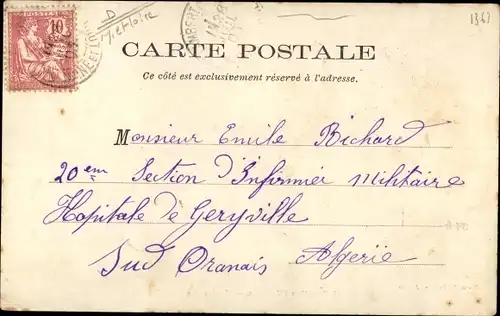 10
1367
CARTE POSTALE
Ce côté est exclusivement réservé à l'adresse.
Monsieur Emile Bichard
20em Section d'Infirmier Militaire
Hopitale de Geryville
Sud Oranais Algerie